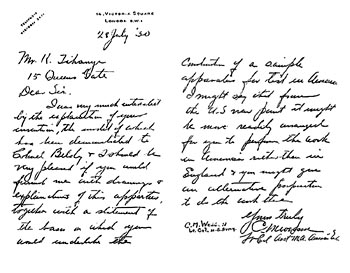 14, VICTORIA SQUARE
LONDON S.W.1
28 July '30
Mr. K. Tihanyi
15 Queens Gate
Dear Sir.
I was very much interested
by the explanation of your
invention, the model of which
has been demonstrated to
Colonel & I should be
very pleased if you would
furnish me with drawings &
explanations of this apparatus,
together with a statement of
the basis on which you
would undertake the
Construction of a sample
apparatus for test in America
I might say that from
the U.S view point it might
be more readily arranged
for you to perform the work
in America rather than in
England & you might give
an alternative proposition
to do the work there.
Yours truly
C.M.
Lt Col. U.S. Army
Lt Col